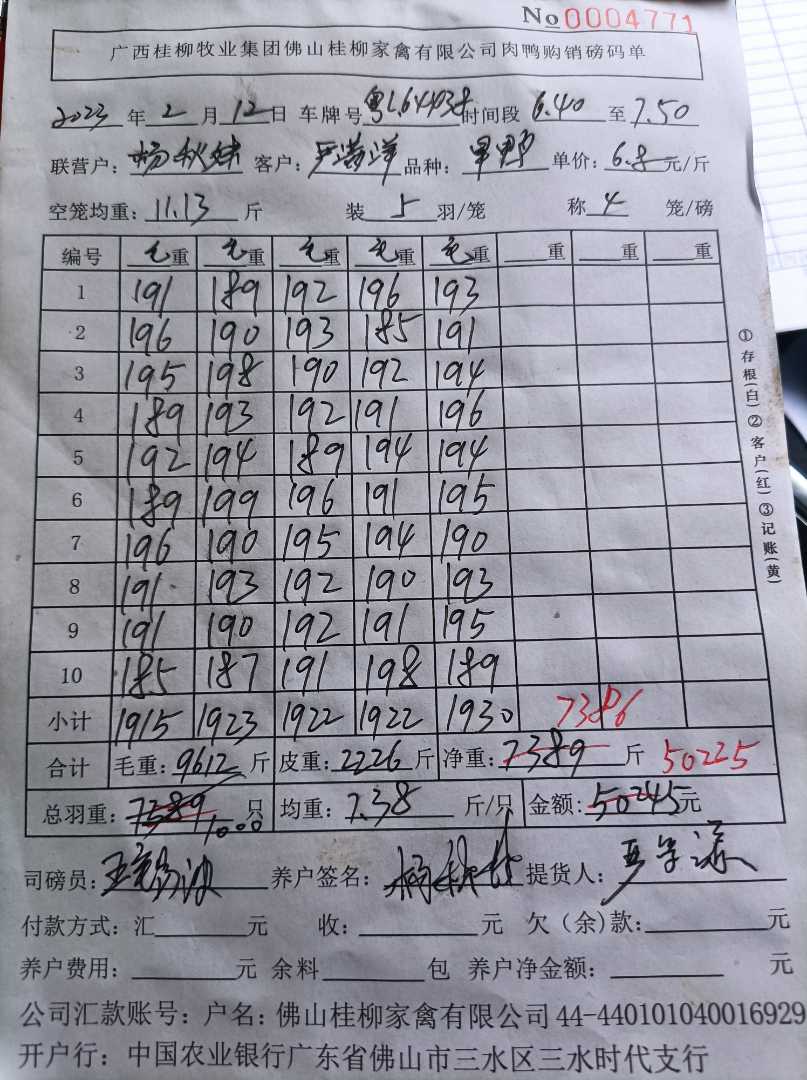 No 0004771
广西桂柳牧业集团佛山桂柳家禽有限公司肉鸭购销磅码单
2023年2月12日 车牌号 时间段6.40至7.50
联营户:杨秋妹 客户: 品种: 单价:6.8元/斤
空笼均重:11.13斤 装5羽/笼 称4笼/磅
编号 毛重 毛重 毛重 毛重 毛重 重 重 重
1 191 189 192 196 193
2 196 190 193 185 191
3 195 198 190 192 194
4 189 193 192 191 196
5 192 194 189 194 194
6 189 199 196 191 195
7 196 190 195 194 190
8 191 193 192 190 193
9 191 190 192 191 195
10 185 187 191 198 189
小计 1915 1923 1922 1922 1930 7386
合计 毛重:9612斤 皮重:2226斤 净重:7389斤 50225
总羽重:7389 1000只 均重:7.38斤/只 金额:50245元
司磅员: 养户签名: 提货人:
付款方式:汇 元 收: 元 欠(余)款: 元
养户费用: 元 余料 包 养户净金额: 元
公司汇款账号:户名:佛山桂柳家禽有限公司44-440101040016929
开户行:中国农业银行广东省佛山市三水区三水时代支行
①存根(白)②客户(红)③记账(黄)